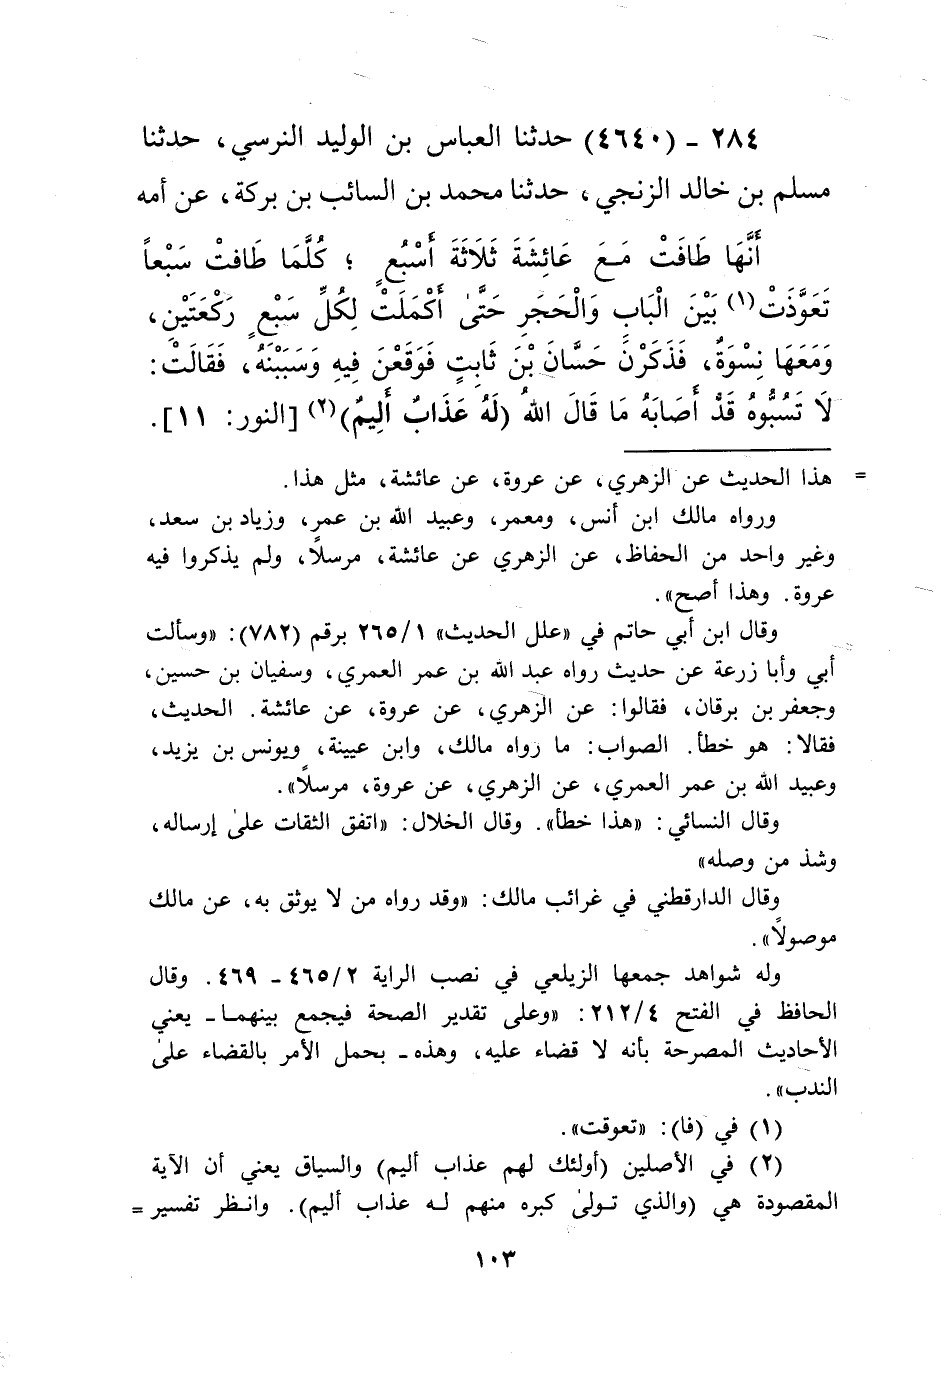 ٢٨٤ - (٤٦٤٠) حدثنا العباس بن الوليد النرسي، حدثنا
مسلم بن خالد الزنجي، حدثنا محمد بن السائب بن بركة، عن أمه
أَنَّهَا طَافَتْ مَعَ عَائِشَةَ ثَلَاثَةَ أَسْبُعٍ ؛ كُلَّمَا طَافَتْ سَبْعاً
تَعَوَّذَتْ(١) بَيْنَ الْبَابِ وَالْحَجَرِ حَتَّىٰ أَكْمَلَتْ لِكُلِّ سَبْعٍ رَكْعَتَيْنِ،
وَمَعَهَا نِسْوَةٌ، فَذَكَرْنَ حَسَّانَ بْنَ ثَابِتٍ فَوَقَعْنَ فِيهِ وَسَبَبْنَهُ، فَقَالَتْ:
لَا تَسُبُّوهُ قَدْ أَصَابَهُ مَا قَالَ اللهُ (لَهُ عَذَابٌ أَلِيمٌ)(٢) [النور: ١١].
= هذا الحديث عن الزهري، عن عروة، عن عائشة، مثل هذا.
ورواه مالك ابن أنس، ومعمر، وعبيد الله بن عمر، وزياد بن سعد،
وغير واحد من الحفاظ، عن الزهري عن عائشة، مرسلاً، ولم يذكروا فيه
عروة. وهذا أصح».
وقال ابن أبي حاتم في «علل الحديث» ١/٢٦٥ برقم (٧٨٢): «وسألت
أبي وأبا زرعة عن حديث رواه عبد الله بن عمر العمري، وسفيان بن حسين،
وجعفر بن برقان، فقالوا: عن الزهري، عن عروة، عن عائشة. الحديث،
فقالا: هو خطأ. الصواب: ما رواه مالك، وابن عيينة، ويونس بن يزيد،
وعبيد الله بن عمر العمري، عن الزهري، عن عروة، مرسلاً».
وقال النسائي: «هذا خطأ». وقال الخلال: «اتفق الثقات علىٰ إرساله،
وشذ من وصله»
وقال الدارقطني في غرائب مالك: «وقد رواه من لا يوثق به، عن مالك
موصولاً».
وله شواهد جمعها الزيلعي في نصب الراية ٢/٤٦٥ - ٤٦٩. وقال
الحافظ في الفتح ٤/٢١٢: «وعلى تقدير الصحة فيجمع بينهما - يعني
الأحاديث المصرحة بأنه لا قضاء عليه، وهذه - بحمل الأمر بالقضاء علىٰ
الندب».
(١) في (فا): «تعوقت».
(٢) في الأصلين (أولئك لهم عذاب أليم) والسياق يعني أن الآية
المقصودة هي (والذي تولىٰ كبره منهم له عذاب أليم). وانظر تفسير =
١٠٣